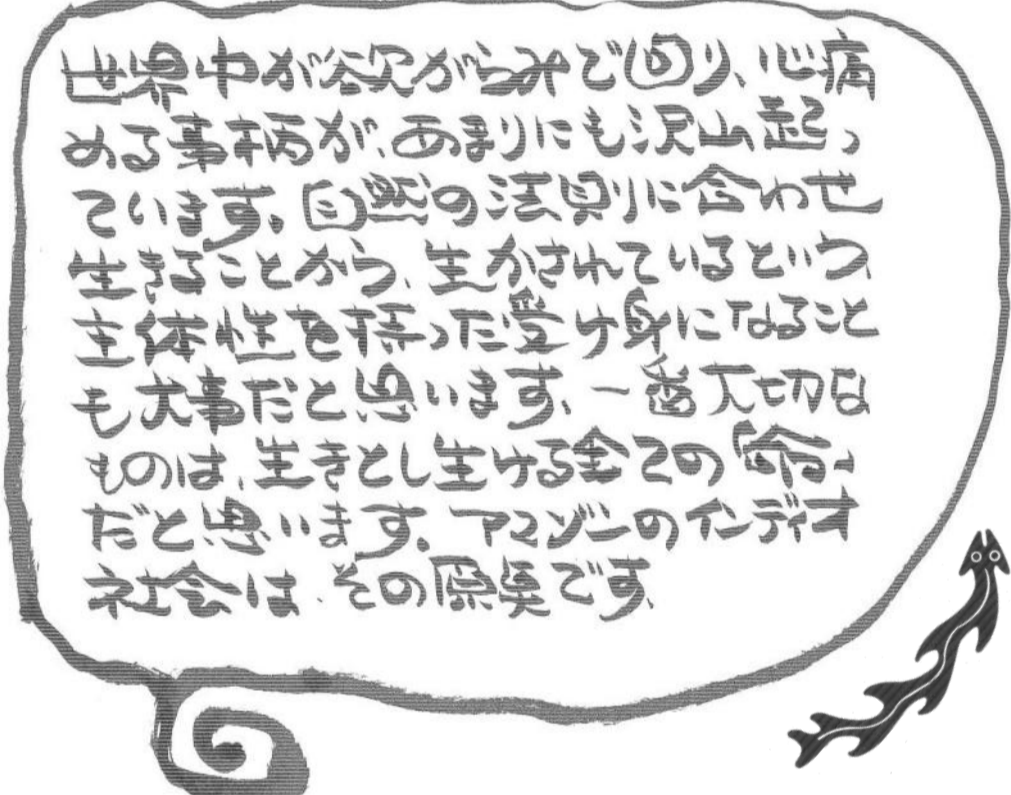 世界中が欲がらみで回り、心痛
める事柄が、あまりにも沢山起っ
ています。自然の法則に合わせ
生きることから、生かされているという、
主体性を持った受け身になること
も大事だと思います。一番大切な
ものは、生きとし生ける全ての命、
だと思います。アマゾンのインディオ
社会は、その原点です。